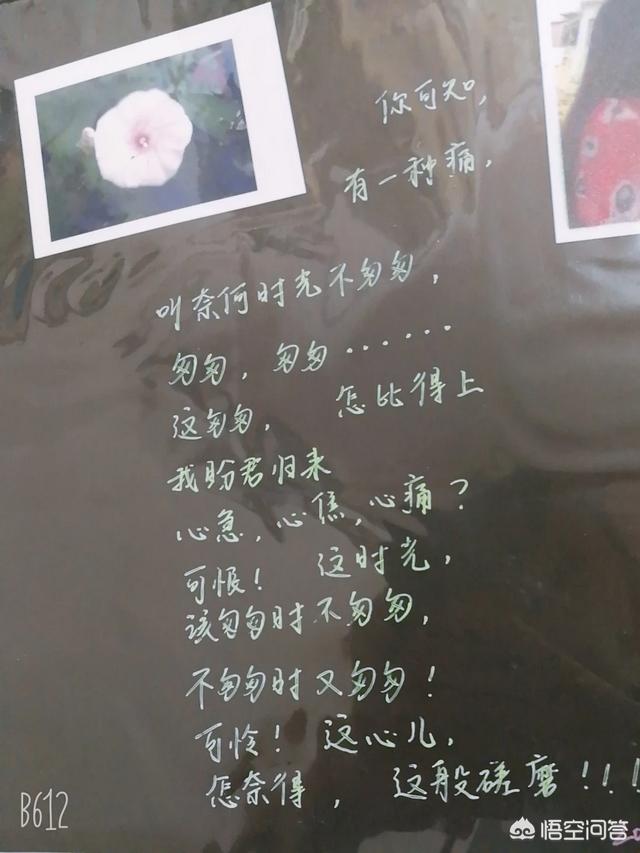 你可知,
有一种痛,
叫奈何时光不匆匆,
匆匆,匆匆······
这匆匆, 怎比得上
我盼君归来
心急,心焦,心痛?
可恨! 这时光,
该匆匆时不匆匆,
不匆匆时又匆匆!
可怜! 这心儿,
怎奈得, 这般磋磨!!!
B612
悟空问答